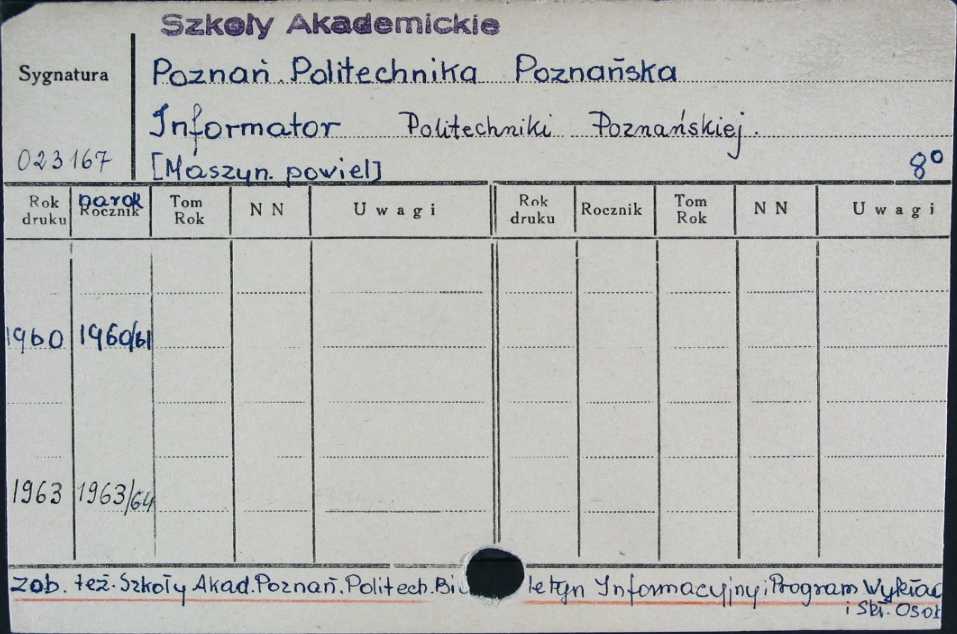 Szkoły Akademickie
Sygnatura
Poznań. Politechnika Poznańska
Informator Politechniki Poznańskiej.
023167
[Maszyn. powiel] 8°
Rok druku narok Rocznik Tom Rok NN Uwagi Rok druku Rocznik Tom Rok NN Uwagi
1960 1960/61
1963 1963/64
zob. też. Szkoły Akad. Poznań. Politech. Bi letyn Informacyjny i Program Wykład
i Skł. Osob